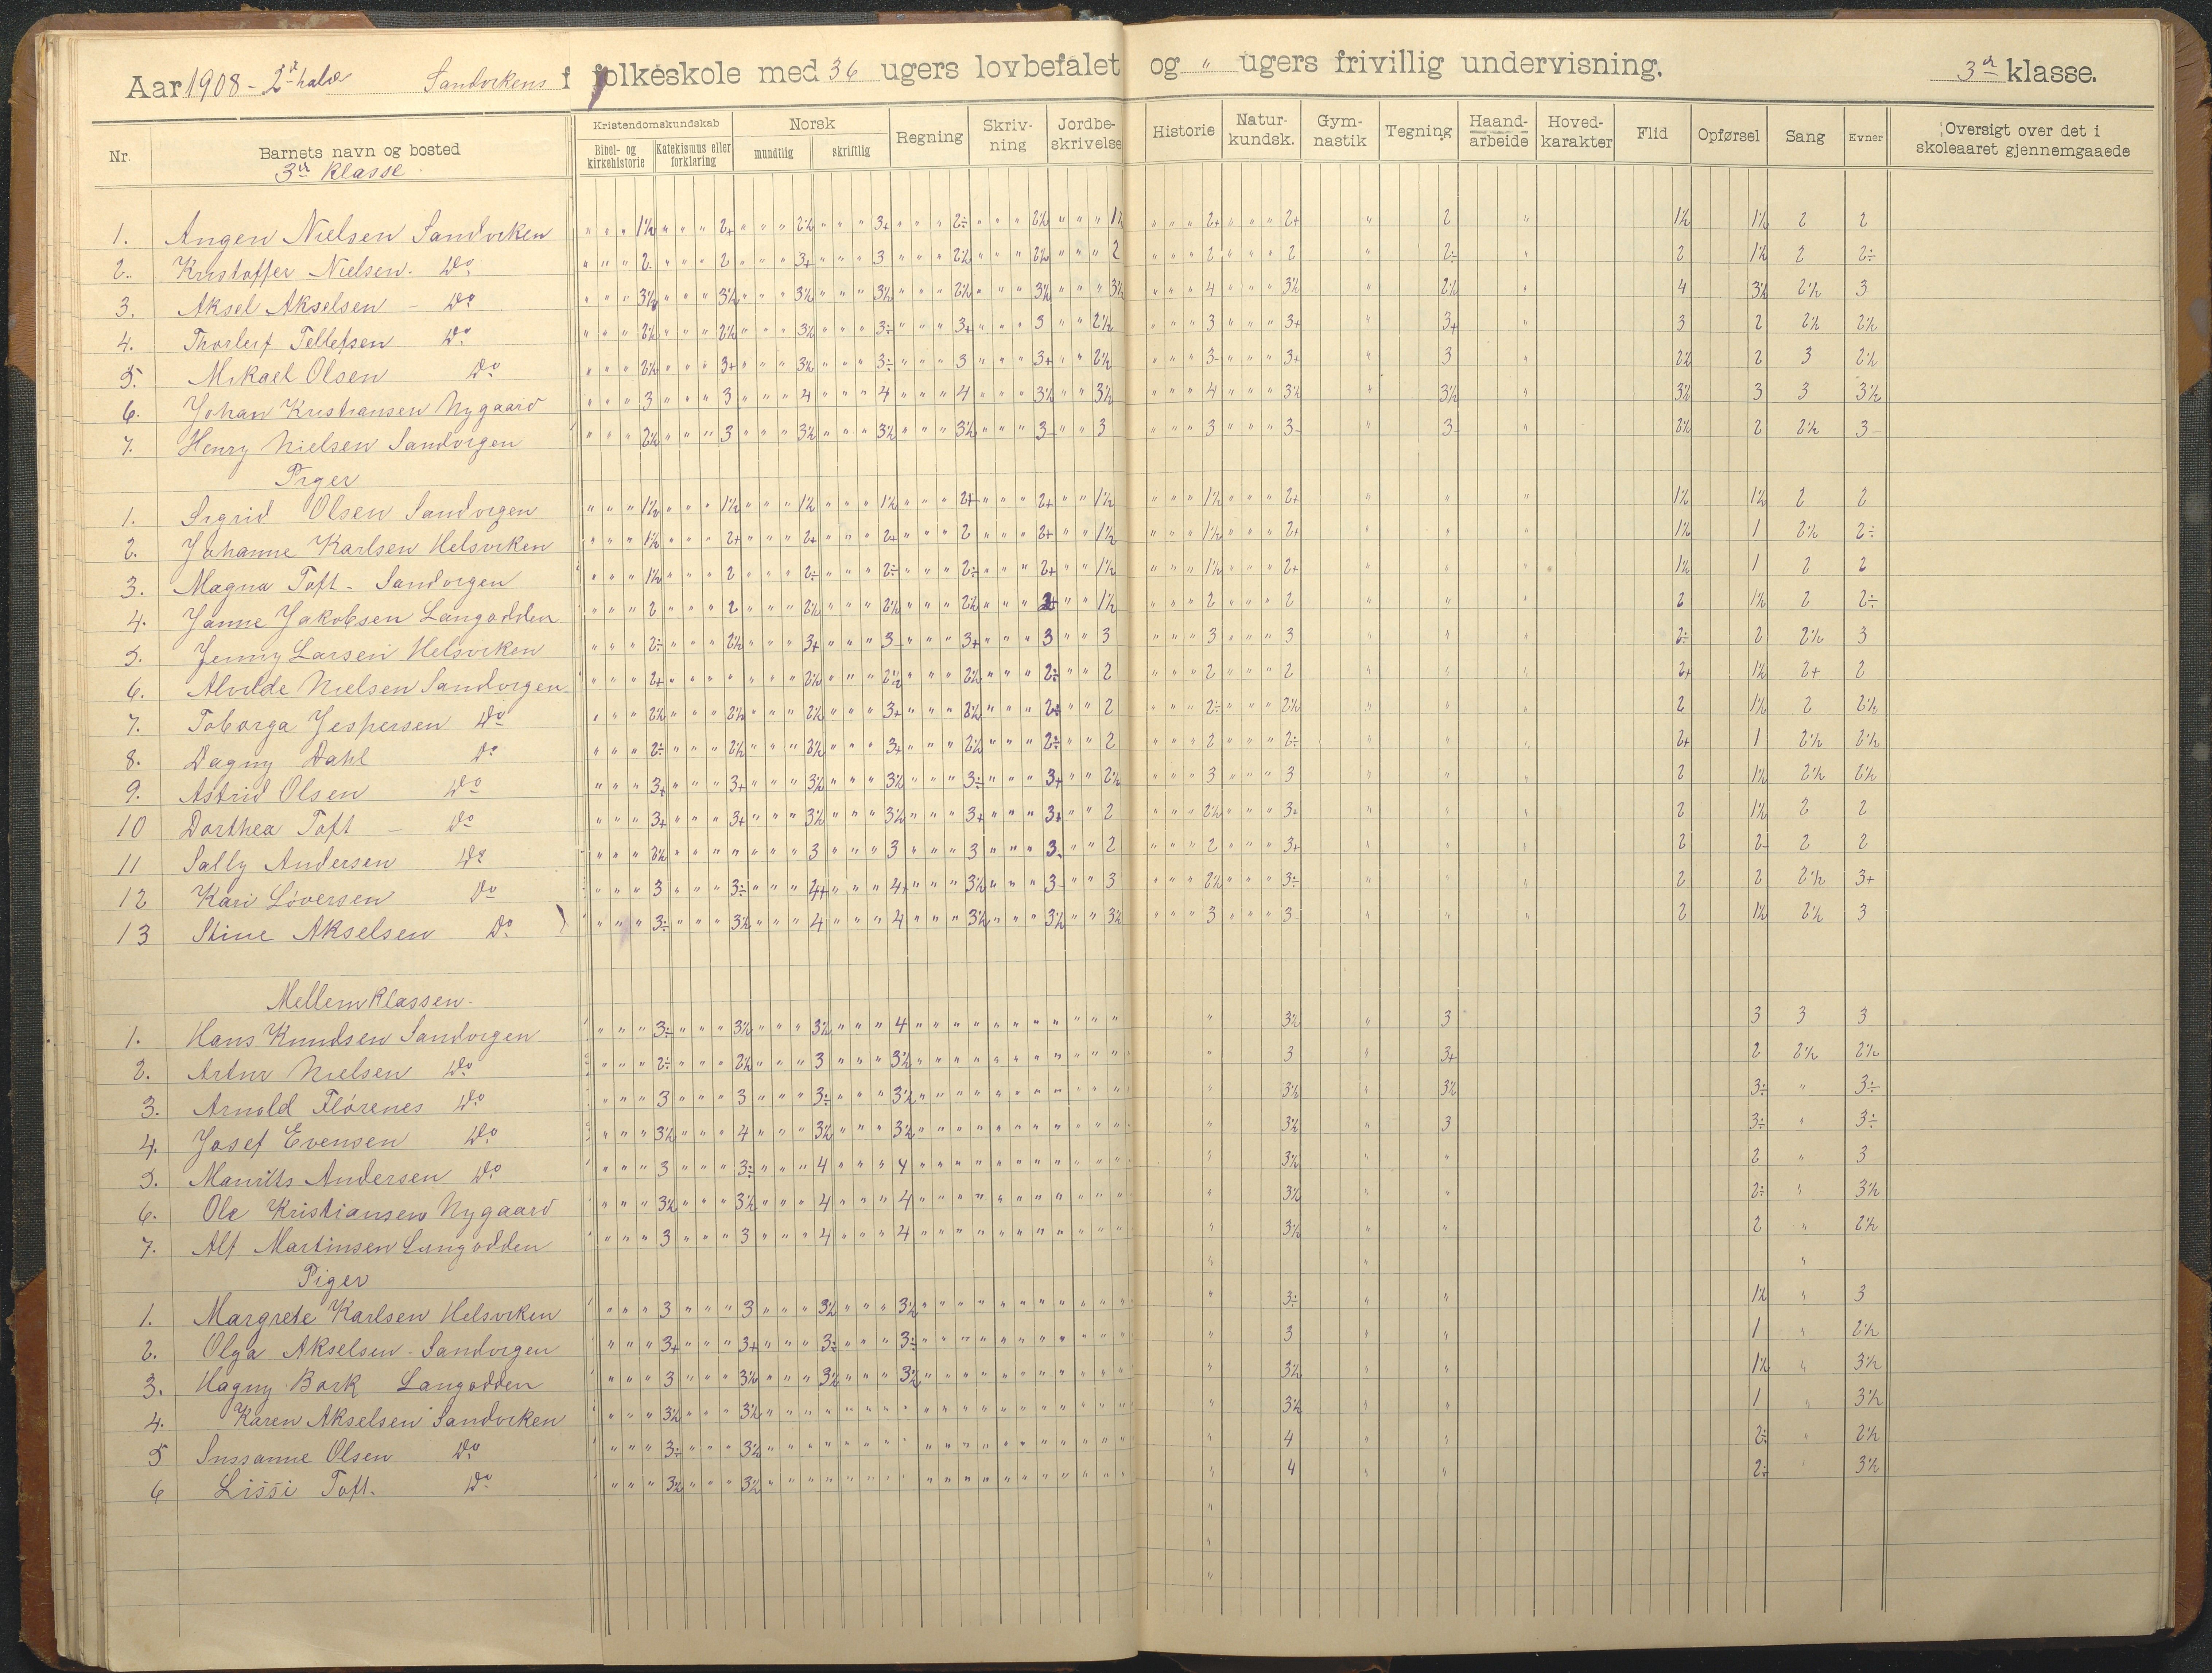 Aar 1908 - 2den halv Sandvikens folkeskole med 36 ugers lovbefalet og " ugers frivillig undervisning. 3die klasse.
Nr. Barnets navn og bosted Kristendomskundskab Norsk Regning Skriv-ning Jordbe-skrivelse Historie Natur-kundsk. Gym-nastik Tegning Haand-arbeide Hoved-karakter Flid Opførsel Sang Evner Oversigt over det i skoleaaret gjennemgaaede
Bibel- og kirkehistorie Katekismus eller forklaring mundtlig skriftlig
3die Klasse
1. Angen Nielsen Sandviken 1½ 2+ 2½ 3+ 2÷ 2½ 1½ 2+ 2+ " 2 " 1½ 1½ 2 2
2. Kristoffer Nielsen Do 2 2 3+ 3 2½ 2½ 2 2 2 " 2÷ " 2 1½ 2 2÷
3. Aksel Akselsen - Do 3½ 3½ 3½ 3½ 2½ 3½ 3½ 4 3½ " 2½ " 4 3½ 2½ 3
4. Thorleif Tellefsen Do 2½ 2½ 3½ 3÷ 3+ 3 2½ 3 3+ " 3+ " 3 2 2½ 2½
5. Mikael Olsen Do 2½ 3+ 3½ 3÷ 3 3+ 2½ 3- 3+ " 3 " 2½ 2 3 2½
6. Johan Kristiansen Nygaard 3 3 4 4 4 3½ 3½ 4 3½ " 3½ " 3½ 3 3 3½
7. Henry Nielsen Sandvigen 2½ 3 3½ 3½ 3½ 3- 3 3 3- " 3- " 2½ 2 2½ 3-
Piger
1. Sigrid Olsen Sandvigen 1½ 1½ 1½ 1½ 2+ 2+ 1½ 1½ 2+ " " " 1½ 1½ 2 2
2. Johanne Karlsen Helsviken 1½ 2+ 2+ 2+ 2 2+ 1½ 1½ 2+ " " " 1½ 1 2½ 2÷
3. Magna Toft - Sandvigen 1½ 2 2÷ 2÷ 2÷ 2+ 1½ 1½ 2+ " " " 1½ 1 2 2
4. Janne Jakobsen Langodden 2 2 2½ 2½ 2½ 2+ 1½ 2 2 " " " 2 1½ 2 2÷
5. Jenny Larsen Helsviken 2÷ 2½ 3+ 3- 3+ 3 3 3 3 " " " 2÷ 2 2½ 3
6. Alvilde Nielsen Sandvigen 2+ " 2½ 2½ 2½ 2÷ 2 2 2 " " " 2+ 1½ 2+ 2
7. Toborga Jespersen Do 2½ 2½ 2½ 3+ 2½ 2+ 2 2÷ 2½ " " " 2 1½ 2 2½
8. Dagny Dahl Do 2÷ 2½ 2½ 3+ 2½ 2÷ 2 2 2÷ " " " 2+ 1 2½ 2½
9. Astrid Olsen Do 3+ 3+ 3½ 3½ 3÷ 3+ 2½ 3 3 " " " 2 1½ 2½ 2½
10 Dorthea Toft - Do 3+ 3+ 3½ 3½ 3+ 3+ 2 2½ 3+ " " " 2 1½ 2 2
11 Sally Andersen Do 2½ " 3 3 3 3- 2 2 3+ " " " 2 2- 2 2
12 Kari Løversen Do 3 3÷ 4+ 4+ 3½ 3- 3 2½ 3÷ " " " 2 2 2½ 3+
13 Stine Akselsen Do 3÷ 3½ 4 4 3½ 3½ 3½ 3 3- " " " 2 1½ 2½ 3
Mellemklassen.
1. Hans Knudsen Sandvigen 3÷ 3½ 3½ 4 " " " " 3½ " 3 3 3 3
2. Artur Nielsen Do 2÷ 2½ 3 3½ " " " " 3 " 3+ 2 2½ 2½
3. Arnold Flørenes Do 3 3 3÷ 3½ " " " " 3½ " 3½ 3÷ " 3÷
4. Josef Evensen Do 3½ 4 3½ 3½ " " " " 3½ " 3 3÷ " 3÷
5. Maurits Andersen Do 3 3÷ 4 4 " " " " 3½ " " 2 " 3
6. Ole Kristiansen Nygaard 3½ 3½ 4 4 " " " " 3½ " " 2÷ " 3½
7. Alf Martinsen Langodden 3 3 4 4 " " " " 3½ " " 2 " 2½
Piger
1. Margrete Karlsen Helsviken 3 3 3½ 3½ " " " " 3÷ " " 1½ " 3
2. Olga Akselsen - Sandvigen 3+ 3+ 3÷ 3÷ " " " " 3 " " 1 " 2½
3. Hagny Bork Langodden 3 3½ 3½ 3½ " " " " 3½ " " 1½ " 3½
4. Karen Akselsen Sandviken 3½ 3½ " " " " " " 3½ " " 1 " 3½
5 Sussanne Olsen Do 3÷ 3½ " " " " " " 4 " " 2÷ " 2½
6 Lissi Toft. Do 3½ 3½ " " " " " " 4 " " 2÷ " 3½